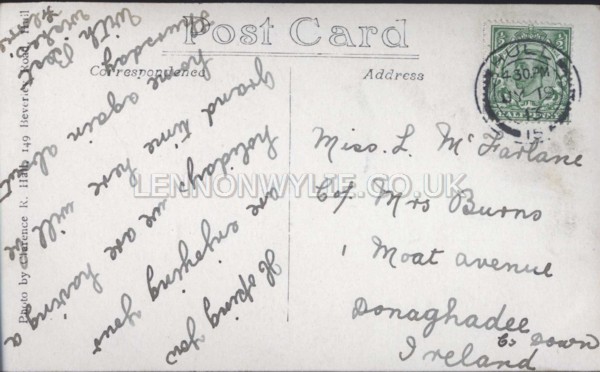 Post Card
Correspondence
Address
HULL
4.30 PM
15
Photo by Clarence R. Hall, 149 Beverley Road, Hull
Hoping you
are enjoying your
holidays we are having a
grand time here will be
home again about
Thursday
With Best
wishes
Miss. L. McFarlane
C/o Mrs Burns
1 Moat avenue
Donaghadee
Co Down
Ireland
LENNONWYLIE.CO.UK